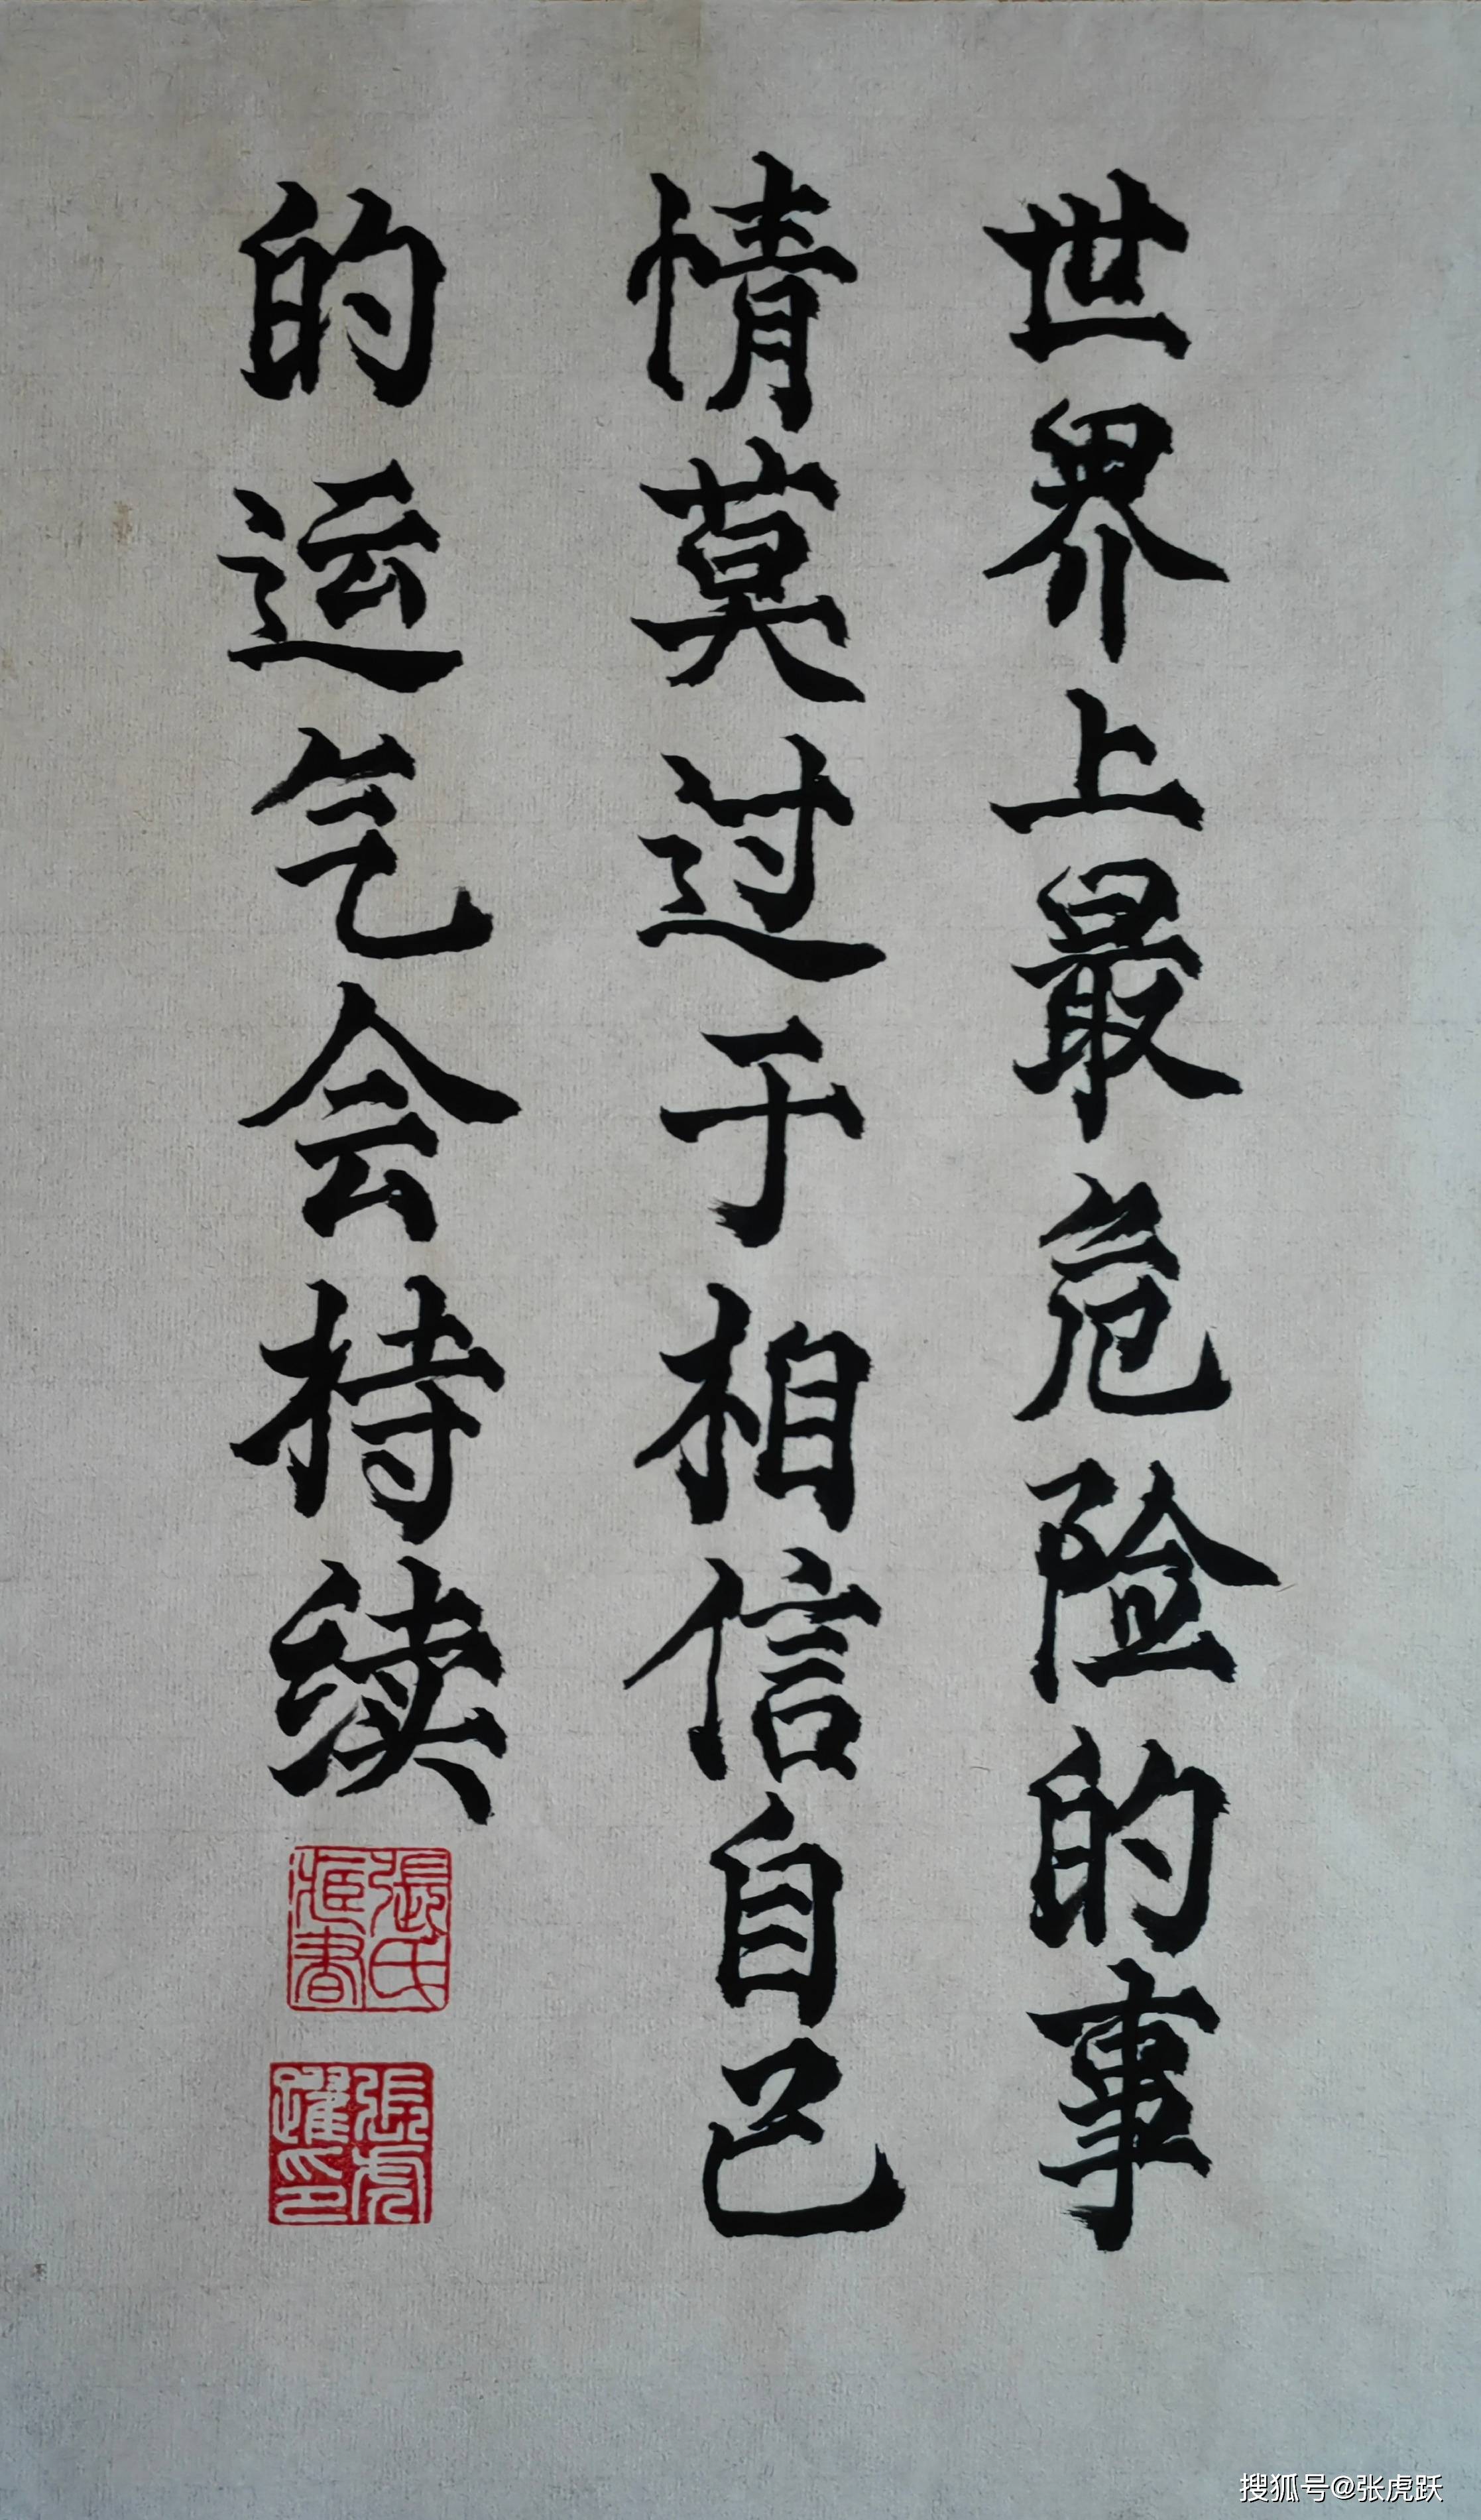 世界上最危险的事
情莫过于相信自己
的运气会持续
張氏
張虎
躍印
搜狐号@张虎跃